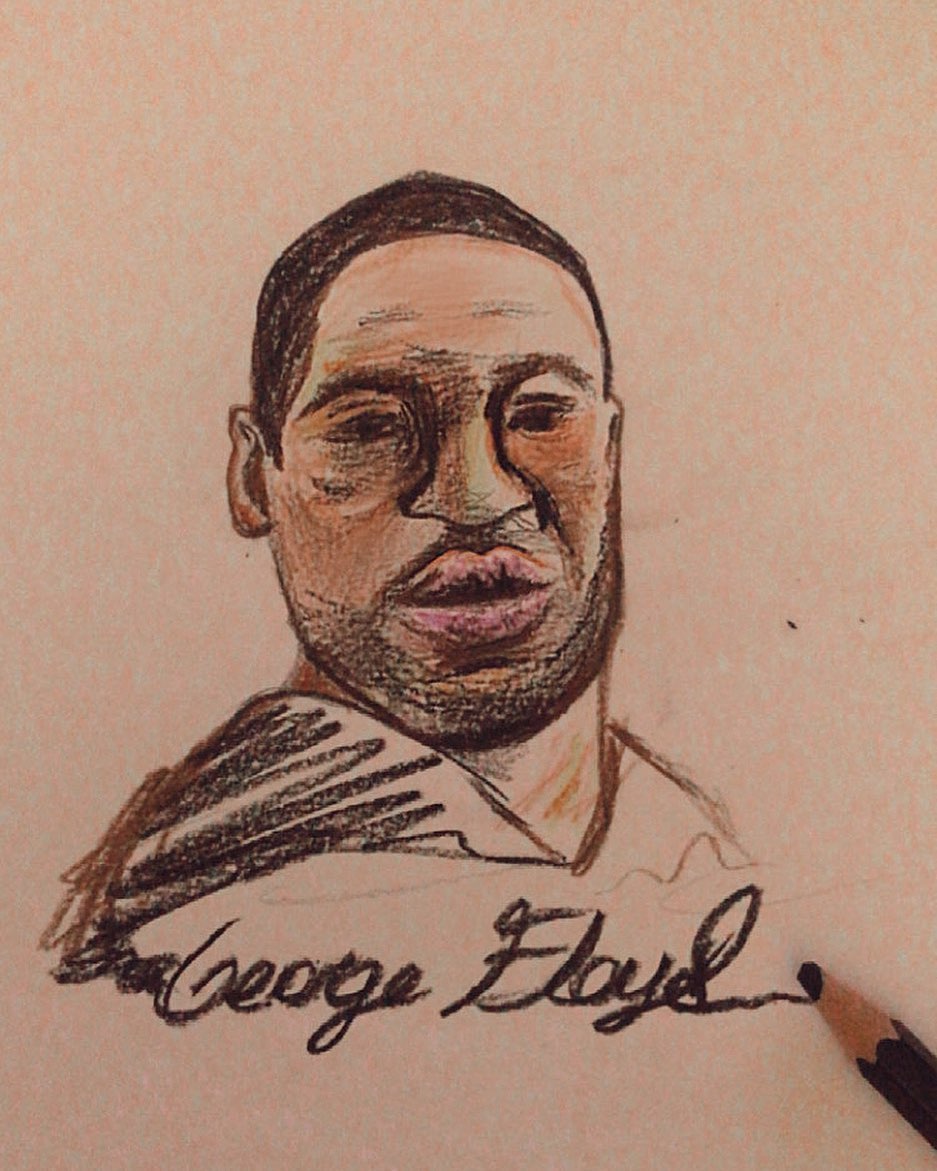 George Floyd